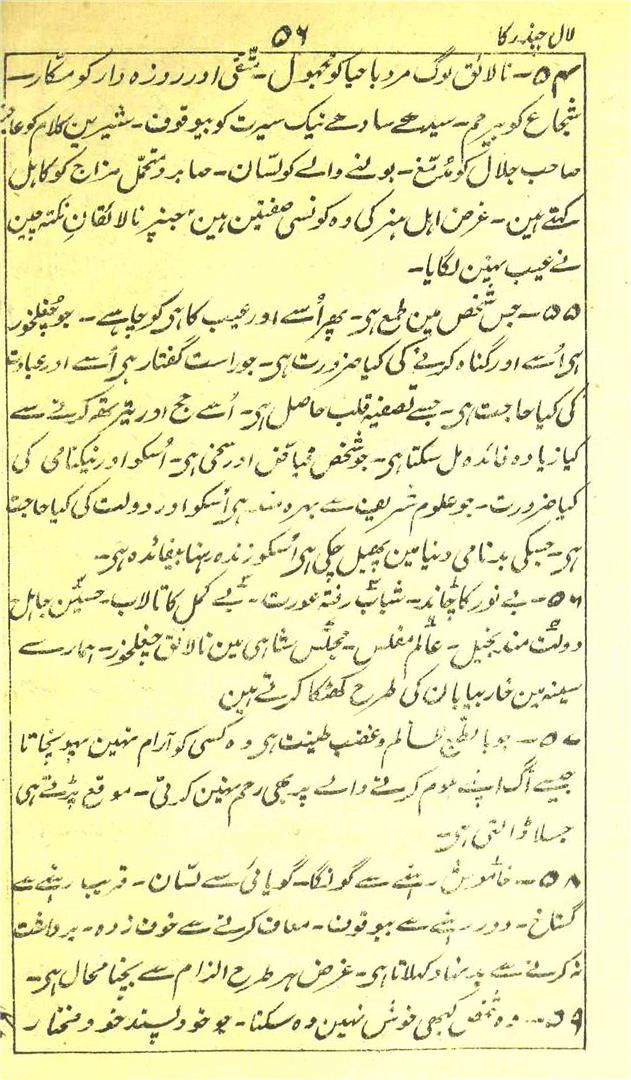 لال چندر کا ۵۶
۵۴ ۔ نالائق لوگ مرد باحیا کو مجہول ۔ متقی اور روزہ دار کو مکار ۔
شجاع کو بیرحم ۔ سیدھے سادھے نیک سیرت کو بیوقوف ۔ شیرین کلام کو عاجز
صاحب جلال کو متمغ ۔ بولنے والے کو لسّان ۔ صابر و متحمّل مزاج کو کاہل
کہتے ہین ۔ غرض اہل ہنر کی وہ کونسی صفتین ہین جنپر نالائقانِ نکتہ چین
نے عیب نہین لگایا ۔
۵۵ ۔ جس شخص مین طمع ہی ۔ پھر اُسے اور عیب کاہی کو چاہے ۔ جو چغلخور
ہی اُسے اور گناہ کرنے کی کیا ضرورت ہی ۔ جو راست گفتار ہی اُسے اور عبادت
کی کیا حاجت ہی ۔ جسے تصفیہ قلب حاصل ہی ۔ اُسے حج اور تیرتھہ کرنے سے
کیا زیادہ فائدہ مل سکتا ہی ۔ جو شخص فیاض اور سخی ہی ۔ اُسکو اور نیکنامی کی
کیا ضرورت ۔ جو علوم شریفہ سے بہرہ مند ہی اُسکو اور دولت کی کیا حاجت
ہی ۔ جسکی بدنامی دنیا مین پھیل چکی ہی اُسکو زندہ رہنا بیفائدہ ہی ۔
۵۶ ۔ بے نور کا چاند ۔ شباب رفتہ عورت ۔ بے کمل کا تالاب ۔ حسین جاہل
دولت مند بخیل ۔ عالم مفلس ۔ مجلس شاہی مین نالائق چغلخور ۔ ہمارے
سینہ مین خار بیابان کی طرح کھٹکا کرتے ہین
۵۷ ۔ جو بالطبع ظالم و غضب طینت ہی وہ کسی کو آرام نہین پہونچاتا
جیسے آگ اپنے ہوم کرنے والے پر بھی رحم نہین کرتی ۔ موقع پڑتے ہی
جلا ڈالتی ہی ۔
۵۸ ۔ خاموش رہنے سے گونگا ۔ گویائی سے لسّان ۔ قریب رہنے سے
گستاخ ۔ دور رہنے سے بیوقوف ۔ معاف کرنے سے خوف زدہ ۔ برداشت
نہ کرنے سے بدنہاد کہلاتا ہی ۔ غرض ہر طرح الزام سے بچنا محال ہی ۔
۵۹ ۔ وہ شخص کبھی خوش نہین رہ سکتا ۔ جو خود پسند خود مختار